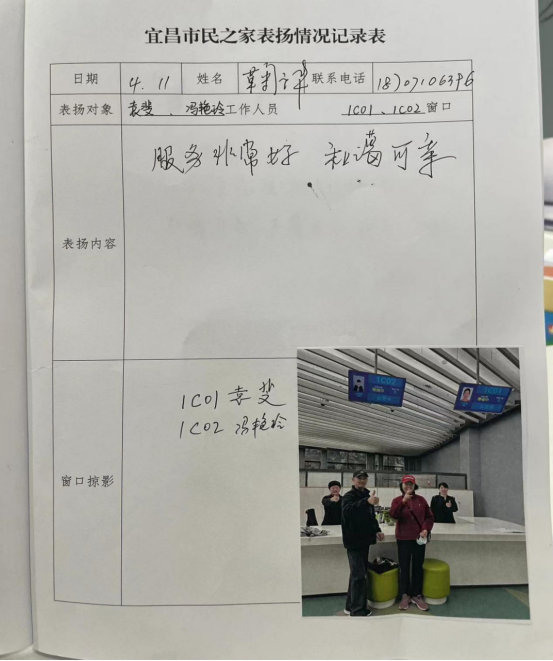 宜昌市民之家表扬情况记录表
日期 4.11 姓名 联系电话
表扬对象 袁斐、冯艳玲工作人员 1C01、1C02窗口
表扬内容 服务非常好 和蔼可亲
窗口掠影
1C01 袁斐
1C02 冯艳玲
1C02
1C01